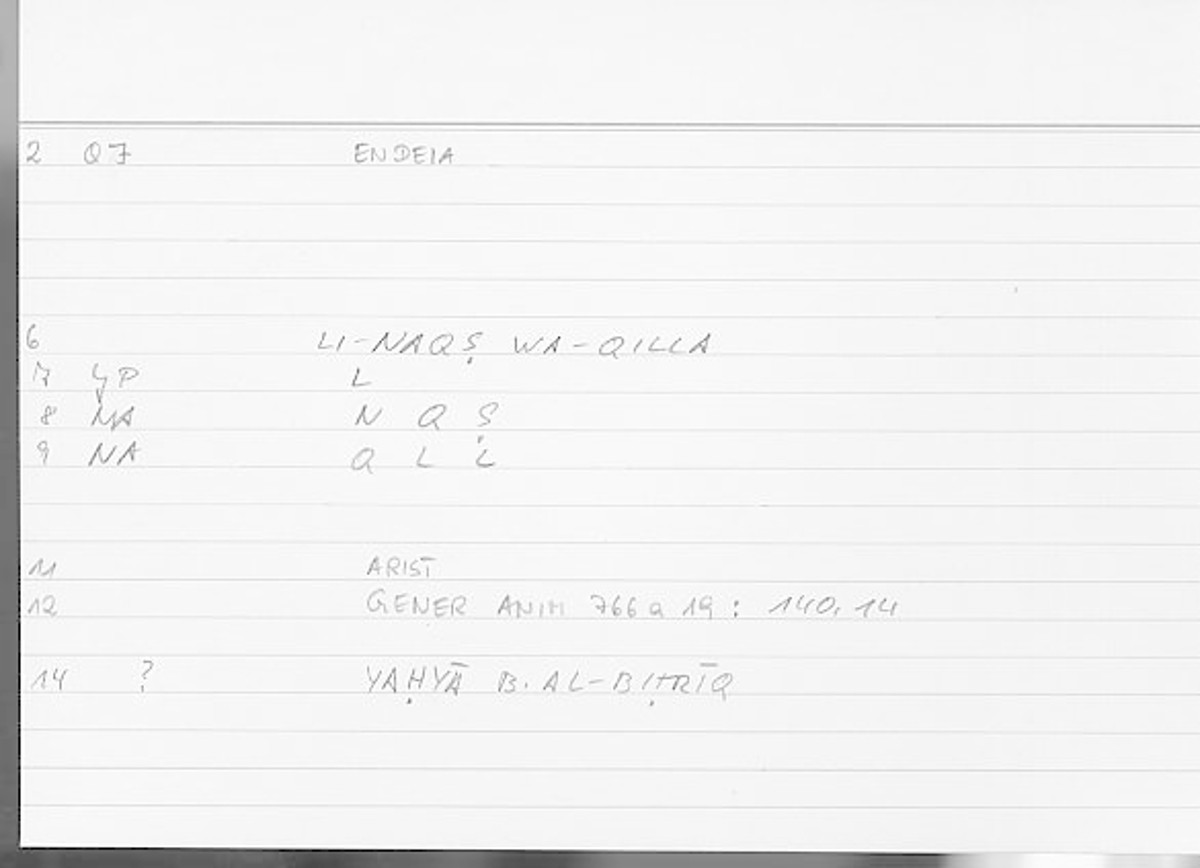 2 Q7 ENDEIA
6 LI-NAQṢ WA-QILLA
7 YP L
8 MA N Q Ṣ
9 NA Q L L
11 ARIST
12 GENER ANIM 766 a 19 : 140, 14
14 ? YAḤYĀ B. AL-BIṬRĪQ